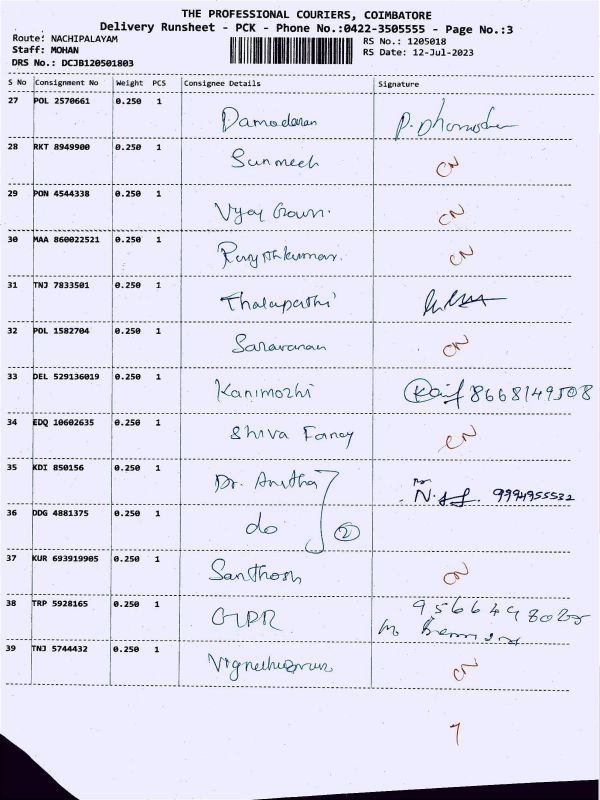 THE PROFESSIONAL COURIERS, COIMBATORE
Delivery Runsheet - PCK - Phone No.:0422-3505555 - Page No.:3
Route: NACHIPALAYAM RS No.: 1205018
Staff: MOHAN RS Date: 12-Jul-2023
DRS No.: DCJB120501803
S No Consignment No Weight PCS Consignee Details Signature
27 POL 2570661 0.250 1 Damodaran
28 RKT 8949900 0.250 1 CN
29 PON 4544338 0.250 1 CN
30 MAA 860022521 0.250 1 CN
31 TNJ 7833501 0.250 1 Thalapathi
32 POL 1582704 0.250 1 Saravanan CN
33 DEL 529136019 0.250 1 Kanimozhi 8668149508
34 EDQ 10602635 0.250 1 Shiva Fancy CN
35 KDI 850156 0.250 1 Dr. Anitha 9994955532
36 DDG 4881375 0.250 1 do 2
37 KUR 693919905 0.250 1 Santhosh CN
38 TRP 5928165 0.250 1
39 TNJ 5744432 0.250 1 CN
7